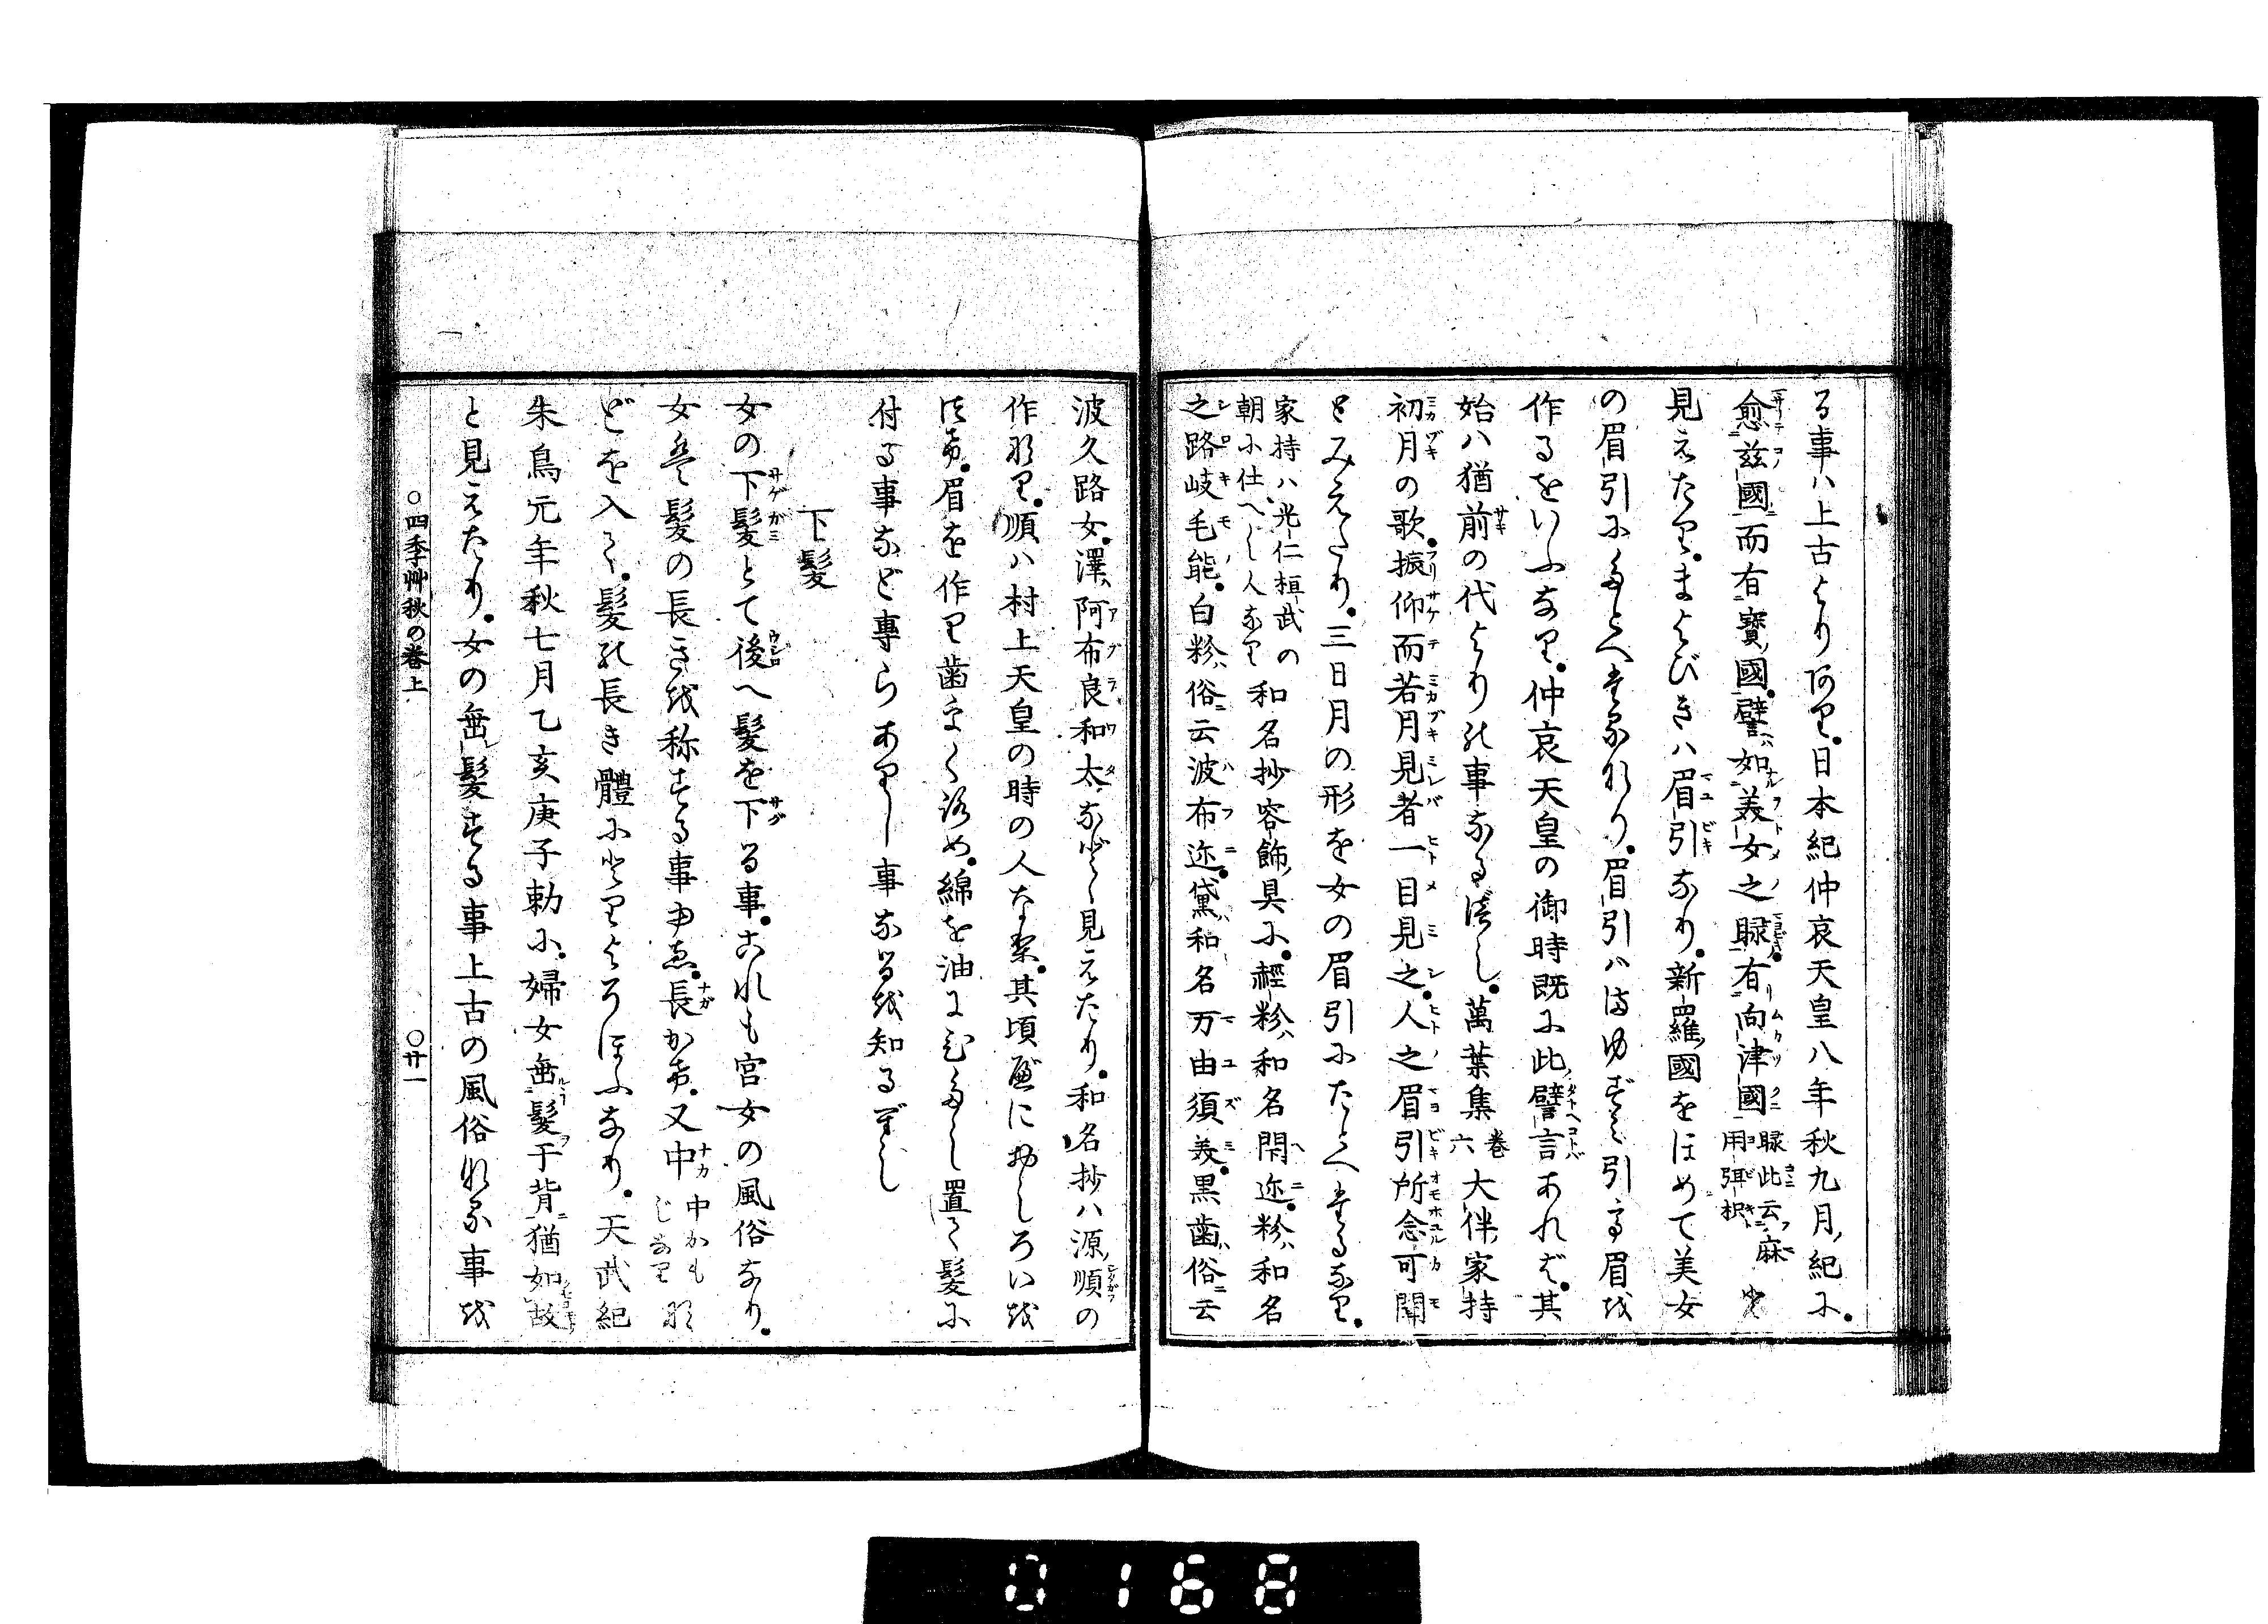 る事ハ上古よりあり。日本紀仲哀天皇八年秋九月紀に。
愈茲國而有寶國。譬如美女之睩有向津國睩此云麻用弭枳と
見えたり。まよびきハ眉引なり。新羅國をほめて美女
の眉引にたとへたるなり。眉引ハまゆずミ引て眉を
作るをいふなり。仲哀天皇の御時既に此譬言あれバ。其
始ハ猶前の代よりの事なるべし。萬葉集卷六大伴家持
初月の歌。振仰而若月見者一目見之。人之眉引所念可聞
とみえたり。三日月の形を女の眉引にたとへたるなり。
家持ハ光仁桓武の朝に仕へし人なり和名抄容飾具に。輕粉和名閇迩。粉和名
之路岐毛能。白粉俗云波布迩。黛和名万由須美。黒歯俗云
波久路女。澤阿布良和太など見えたり。和名抄ハ源順の
作なり。順ハ村上天皇の時の人なれバ。其頃既におしろいを
つけ。眉を作り歯くろく染め。綿を油にひたし置て髪に
付る事など專らありし事なるを知るべし
下髪
女の下髪とて後へ髪を下る事。これも宮女の風俗なり。
女ハ髪の長きを称する事ゆゑ。長かけ。又中中かもじなりな
どを入て。髪の長き體にとりよろほふなり。天武紀
朱鳥元年秋七月乙亥庚子勅に。婦女垂髪于背猶如故
と見えたり。女の垂髪する事上古の風俗なる事を
○四季艸秋の巻上
○廿一
0168